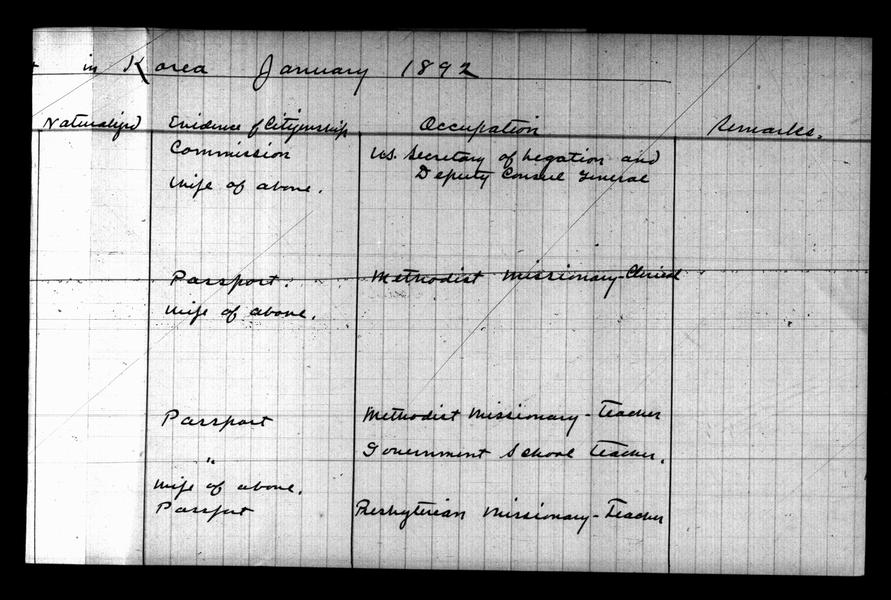 in Korea January 1892
Naturalized Evidence of Citizenship Occupation Remarks.
Commission U.S. Secretary of Legation and
Deputy Consul General
Wife of above.
Passport. Methodist Missionary-Clerical
Wife of above.
Passport Methodist Missionary - Teacher
" Government School Teacher.
Wife of above.
Passport Presbyterian Missionary - Teacher